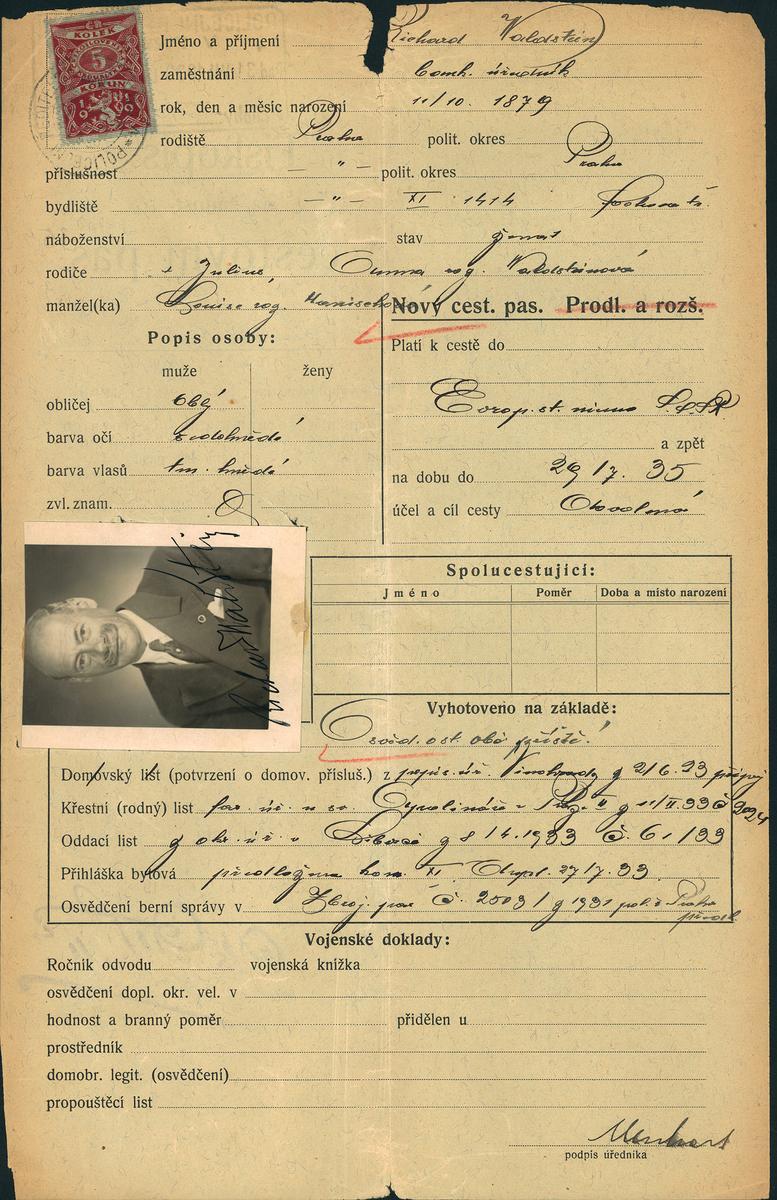 ČR
KOLEK
5
KORUN
1919
Jméno a příjmení Richard Waldstein
zaměstnání úředník
rok, den a měsíc narození 11/10. 1879
rodiště Praha polit. okres Praha
příslušnost — " — polit. okres
bydliště — " — XI 1414
náboženství stav ženat
rodiče Julius, Anna roz. Waldsteinová
manžel(ka) Louise roz.
Nový cest. pas. Prodl. a rozš.
Popis osoby:
muže ženy
obličej obl.
barva očí
barva vlasů tm. hnědá
zvl. znam.
Platí k cestě do
Evrop. st. mimo SSSR
a zpět
na dobu do 29/7. 35
účel a cíl cesty
Spolucestující:
Jméno Poměr Doba a místo narození
Vyhotoveno na základě:
Osvěd. o st. obč.
Domovský list (potvrzení o domov. přísluš.) z Vinohrady 2/6. 23
Křestní (rodný) list far. úř. u sv. Apolináře v Praze II 11/II. 33 č 2024
Oddací list okr. úř. v 8/4. 1933 č. 61/33
Přihláška bytová předložena kom. XI 27/7. 33
Osvědčení berní správy v Zbroj. pas č. 2503/ 1931 pol. ř. Praha
Vojenské doklady:
Ročník odvodu vojenská knížka
osvědčení dopl. okr. vel. v
hodnost a branný poměr přidělen u
prostředník
domobr. legit. (osvědčení)
propouštěcí list
podpis úředníka